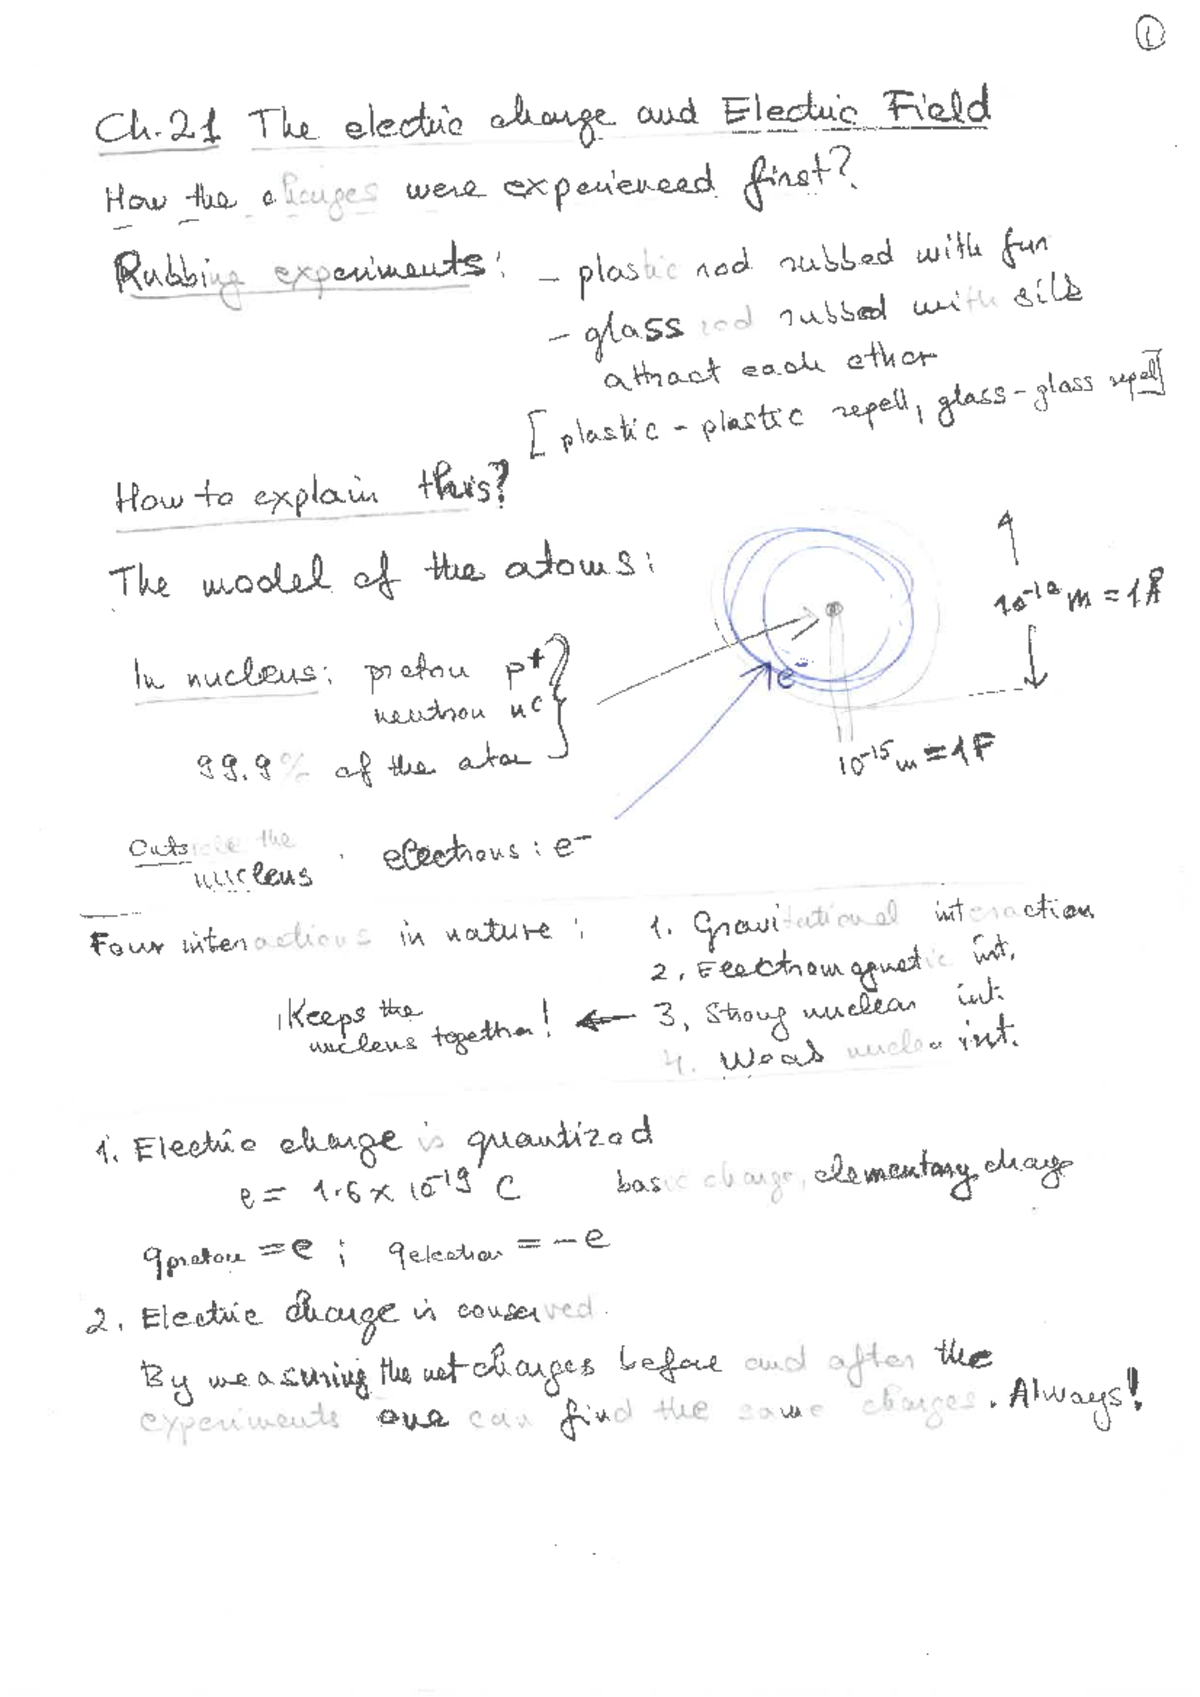 1
Ch.21 The electric charge and Electric Field
How the charges were experienced first?
Rubbing experiments: - plastic rod rubbed with fur
- glass rod rubbed with silk
attract each other
[plastic - plastic repell, glass - glass repell]
How to explain this?
The model of the atoms:
10⁻¹⁰ m = 1Å
In nucleus: proton p⁺
neutron n⁰
e⁻
99.9% of the atom
10⁻¹⁵ m = 1F
Outside the
nucleus : electrons : e⁻
Four interactions in nature : 1. Gravitational interaction
2. Electromagnetic int.
Keeps the nucleus together! ← 3. Strong nuclear int.
4. Weak nuclear int.
1. Electric charge is quantized
e = 1.6 × 10⁻¹⁹ C basic charge, elementary charge
qproton = e ; qelectron = -e
2. Electric charge is conserved.
By measuring the net charges before and after the
experiments one can find the same charges. Always!